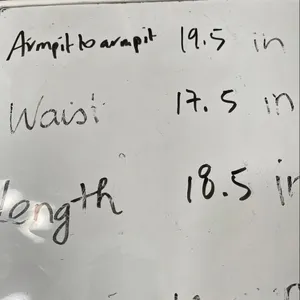 Armpit to armpit 19.5 in
Waist 17.5 in
Length 18.5 in